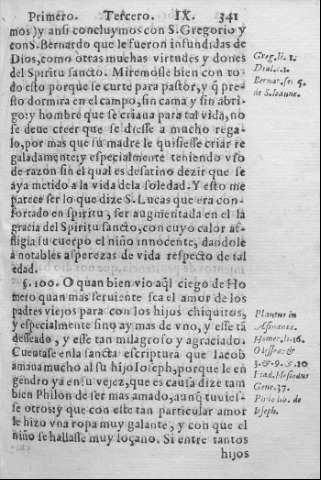 Primero. Tercero. IX. 341
mos) y ansi concluymos con S. Gregorio y
con S. Bernardo que le fueron infundidas de
Dios, como otras muchas virtudes y dones
del Spiritu sancto. Miremosle bien con to
do esto porque se curte para pastor, y q̃ pre
sto dormira en el campo, sin cama y sin abri-
go: y hombre que se criaua para tal vida, no
se deue creer que se diesse a mucho rega-
lo, por mas que su madre le quisiesse criar re
galadamente: y especialmente teniendo vso
de razon sin el qual es desatino dezir que se
aya metido a la vida de la soledad. Y esto me
parece ser lo que dize S. Lucas que era con-
fortado en spiritu, ser augmentada en el la
gracia del Spiritu sancto, con cuyo calor af-
fligia su cuerpo el niño innocente, dandole
a notables asperezas de vida respecto de tal
edad.
§. 100. O quan bien vio aq̃l ciego de Ho
mero quan mas feruiente sea el amor de los
padres viejos para con los hijos chiquitos,
y especialmente sino ay mas de vno, y esse tã
desseado, y esse tan milagroso y agraciado.
Cuentase en la sancta escriptura que Iacob
amaua mucho al su hijo Ioseph, porque le en
gendro ya en su vejez, que es causa dize tam
bien Philon de ser mas amado, aunq̃ tuuies-
se otros: y que con este tan particular amor
le hizo vna ropa muy galante, y con que el
niño se hallasse muy loçano. Si entre tantos
hijos
Greg. li. 1.
Dial. c. 1.
Bernar. ser.
de S. Ioanne.
Plautus in
Homer. li. 16.
3. & 9. & 10
Gene. 37.
Ioseph.